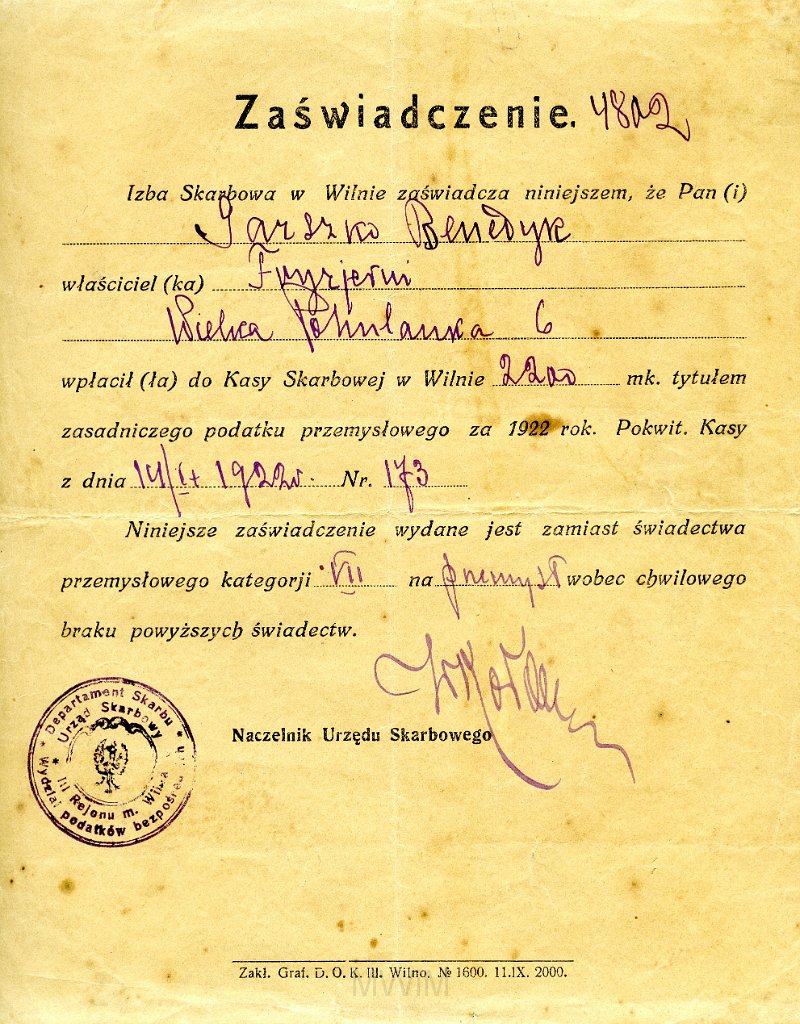 Zaświadczenie. 4802
Izba Skarbowa w Wilnie zaświadcza niniejszem, że Pan (i)
Jarszko Benedyk
właściciel (ka) Fryzjerni
Wielka Pohulanka 6
wpłacił (ła) do Kasy Skarbowej w Wilnie 2200 mk. tytułem
zasadniczego podatku przemysłowego za 1922 rok. Pokwit. Kasy
z dnia 14/IX 1922r. Nr. 173
Niniejsze zaświadczenie wydane jest zamiast świadectwa
przemysłowego kategorji VII na przemysł wobec chwilowego
braku powyższych świadectw.
Naczelnik Urzędu Skarbowego
* Departament Skarbu * Wydział podatków bezpośrednich
Urząd Skarbowy * III Rejonu m. Wilna
Zakł. Graf. D. O. K. III. Wilno. № 1600. 11.IX. 2000.
MWIM